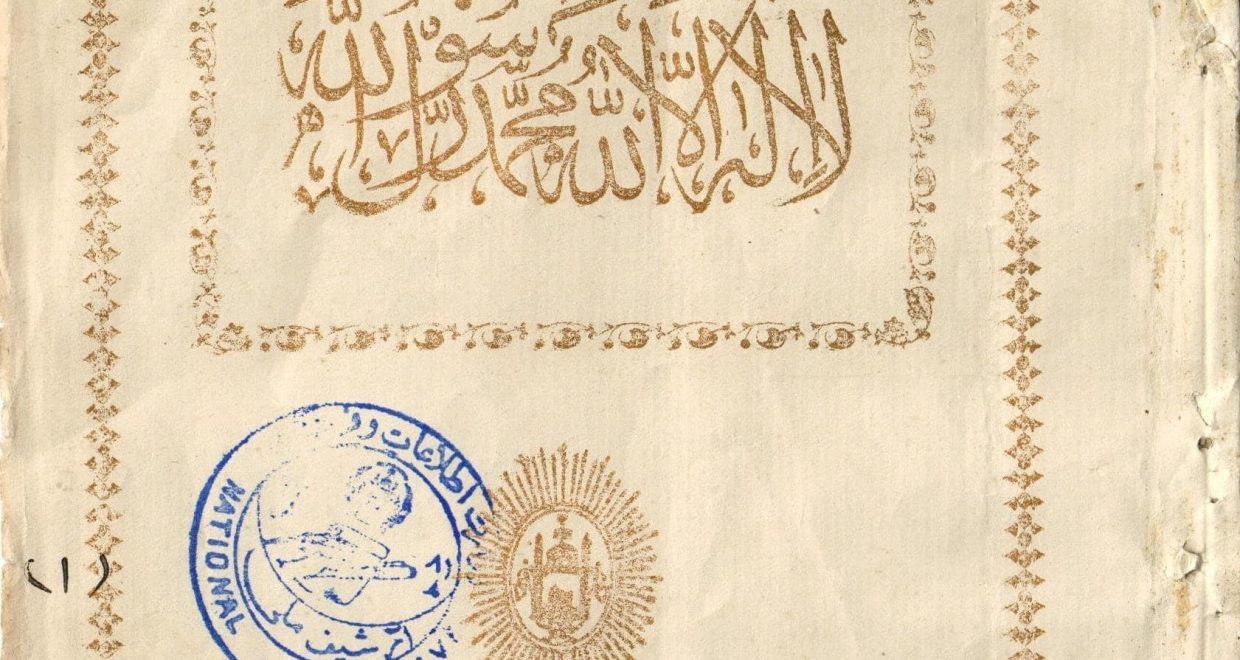 لا إله إلا الله محمد رسول الله
اطلاعات و
NATIONAL
آرشیف ملی
(١)